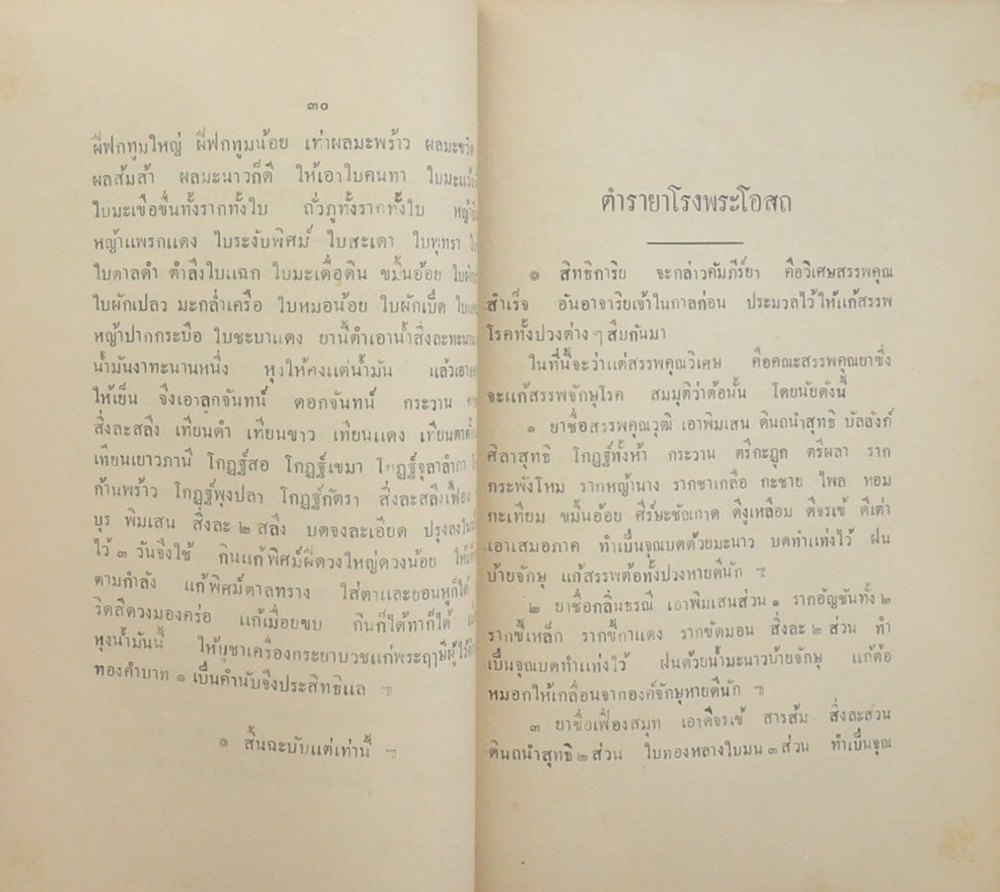 ๓๐
ผี่ฝกทูมใหญ่ ผี่ฝกทูมน้อย เท่าผลมะพร้าว
ผลส้มส้า ผลมะนาวก็ดี ให้เอาใบคนทา
ใบมะเขือขื่นทั้งรากทั้งใบ ถั่วภูทั้งรากทั้งใบ
หญ้าแพรกแดง ใบระงับพิศม์ ใบสะเดา ใบพุทรา
ใบตาลดำ ตำลึงใบแฉก ใบมะเดื่อดิน ขมิ้นอ้อย
ใบผักเปลว มะกล่ำเครือ ใบหมอน้อย ใบผักเบ็ด
หญ้าปากกระบือ ใบชะบาแดง ยานี้ตำเอาน้ำสิ่งละทะนาน
น้ำมันงาทะนานหนึ่ง หุงให้คงแต่น้ำมัน
ให้เย็น จึงเอาลูกจันทน์ ดอกจันทน์ กระวาน
สิ่งละสลึง เทียนดำ เทียนขาว เทียนแดง
เทียนเยาวภานี โกฏฐ์สอ โกฏฐ์เขมา โกฏฐ์จุลาลำภา
ก้านพร้าว โกฏฐ์พุงปลา โกฏฐ์กัตรา สิ่งละสลึงเฟื้อง
บุร พิมเสน สิ่งละ ๒ สลึง บดจงละเอียด
ไว้ ๓ วันจึงใช้ กินแก้พิศม์ผี่ดวงใหญ่ดวงน้อย
ตามกำลัง แก้พิศม์ตาลทราง ใส่ตาและยอนหูก็ได้
ริดสีดวงมองคร่อ แก้เมื่อยขบ กินก็ได้ทาก็ได้
หุงน้ำมันนี้ ให้บูชาเครื่องกระยาบวชแก่พระฤๅษีผู้
ทองคำบาท ๑ เป็นคำนับจึงประสิทธิแล ฯ
๏ สิ้นฉะบับแต่เท่านี้ ฯ
ตำรายาโรงพระโอสถ
๏ สิทธิการิย จะกล่าวคัมภีร์ยา คือวิเศษสรรพคุณ
สำเร็จ อันอาจาริยเจ้าในกาลก่อน ประมวลไว้ให้แก้สรรพ
โรคทั้งปวงต่าง ๆ สืบกันมา
ในที่นี้จะว่าแต่สรรพคุณวิเศษ คือคณะสรรพคุณยาซึ่ง
จะแก้สรรพจักษุโรค สมมุติว่าต้อนั้น โดยนัยดังนี้
๑ ยาชื่อสรรพคุณวุฒิ เอาพิมเสน ดินถนำสุทธิ บัลลังก์
ศิลาสุทธิ โกฏฐ์ทั้งห้า กระวาน ตรีกะฏูก ตรีผลา ราก
กระพังโหม รากหญ้านาง รากชาเกลือ กะชาย ไพล หอม
กะเทียม ขมิ้นอ้อย ศีร์ษะชัณกาด ดีงูเหลือม ดีจรเข้ ดีเต่า
เอาเสมอภาค ทำเป็นจุณบดด้วยมะนาว บดทำแท่งไว้ ฝน
บ้ายจักษุ แก้สรรพต้อทั้งปวงหายดีนัก ฯ
๒ ยาชื่อกลิ่นธรณี เอาพิมเสนส่วน ๑ รากอัญชันทั้ง ๒
รากขี้เหล็ก รากขี้กาแดง รากขัดมอน สิ่งละ ๒ ส่วน ทำ
เป็นจุณบดทำแท่งไว้ ฝนด้วยน้ำมะนาวบ้ายจักษุ แก้ต้อ
หมอกให้เกลื่อนจากองค์จักษุหายดีนัก ฯ
๓ ยาชื่อเฟื่องสมุท เอาดีจรเข้ สารส้ม สิ่งละส่วน
ดินถนำสุทธิ ๒ ส่วน ใบทองหลางใบมน ๓ ส่วน ทำเป็นจุณ